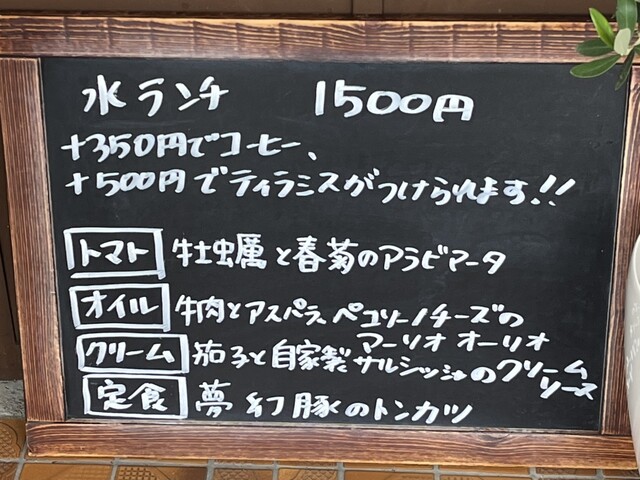 水ランチ 1500円
+350円でコーヒー、
+500円でティラミスがつけられます!!
トマト 牡蠣と春菊のアラビアータ
オイル 牛肉とアスパラ、ペコリーノチーズの
マーリオ オーリオ
クリーム 茄子と自家製サルシッチャのクリーム
ソース
定食 夢幻豚のトンカツ